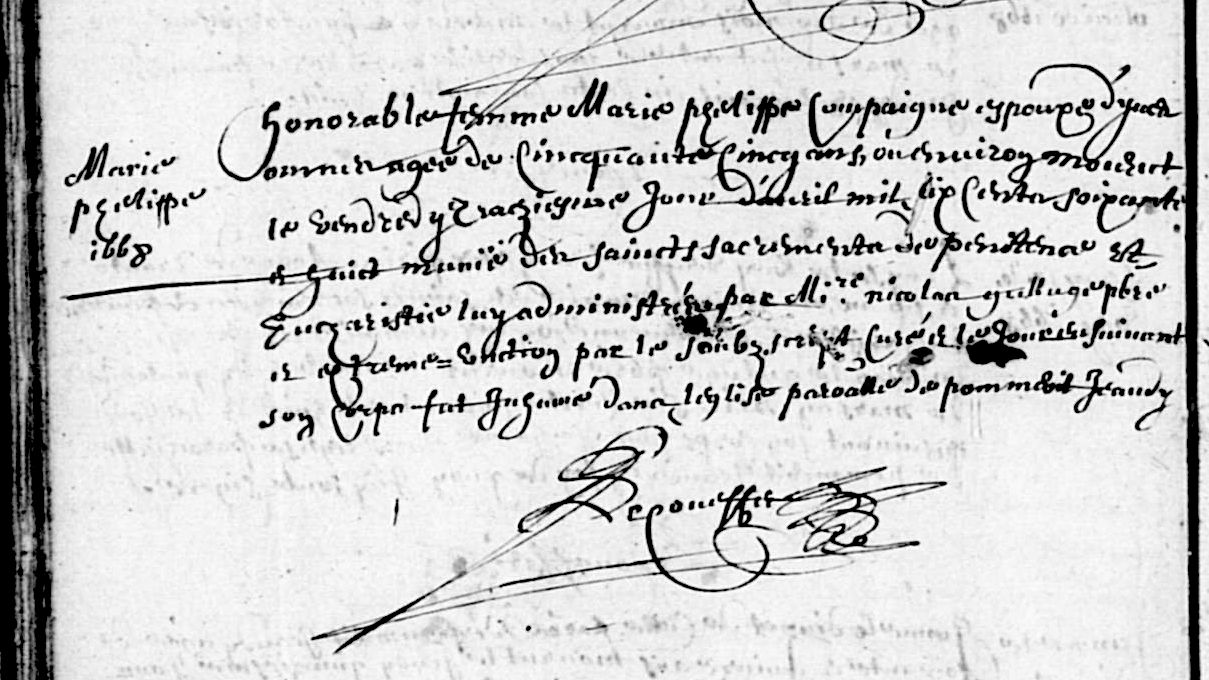 Marie
phelippe
1668
honorable femme Marie phelippe Compaigne espouxe d'yues
agee de Cincquante Cincq ans, ou enuiron mourut
le vendredy traiziesme Jour d'auril mil six Cents soixante
et huict munië des saincts sacrements de penitence et
Eucharistie luy administrés par Mi.re nicolas pbre
et extreme=unction par le soubzscript Curé et le Jour ensuiuant
son Corps fut Inhumé dans leglise paroalle de pommerit Jeaudy